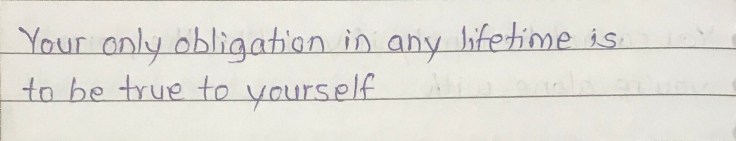 Your only obligation in any lifetime is
to be true to yourself